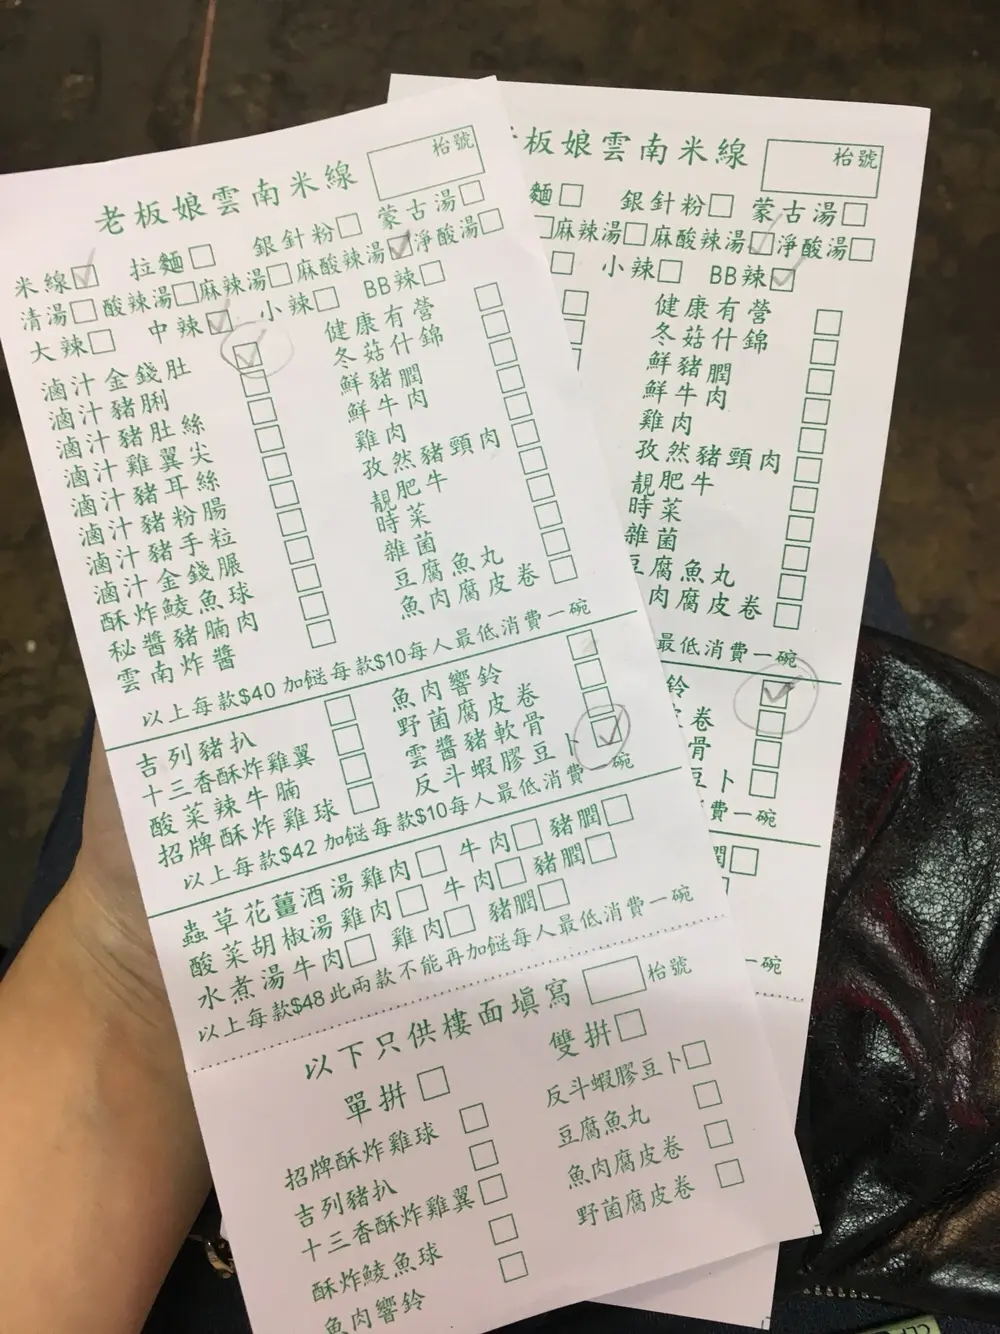 老板娘雲南米線
枱號
米線 拉麵 銀針粉 蒙古湯
清湯 酸辣湯 麻辣湯 麻酸辣湯 淨酸湯
大辣 中辣 小辣 BB辣
滷汁金錢肚
滷汁豬脷
滷汁豬肚絲
滷汁雞翼尖
滷汁豬耳絲
滷汁豬粉腸
滷汁豬手粒
滷汁金錢𦟌
酥炸鯪魚球
秘醬豬腩肉
雲南炸醬
健康有營
冬菇什錦
鮮豬膶
鮮牛肉
雞肉
孜然豬頸肉
靚肥牛
時菜
雜菌
豆腐魚丸
魚肉腐皮卷
以上每款$40 加餸每款$10每人最低消費一碗
吉列豬扒
十三香酥炸雞翼
酸菜辣牛腩
招牌酥炸雞球
魚肉響鈴
野菌腐皮卷
雲醬豬軟骨
反斗蝦膠豆卜
以上每款$42 加餸每款$10每人最低消費一碗
蟲草花薑酒湯雞肉 牛肉 豬膶
酸菜胡椒湯雞肉 牛肉 豬膶
水煮湯牛肉 雞肉 豬膶
以上每款$48此兩款不能再加餸每人最低消費一碗
以下只供樓面填寫
枱號
單拼 雙拼
招牌酥炸雞球
吉列豬扒
十三香酥炸雞翼
酥炸鯪魚球
魚肉響鈴
反斗蝦膠豆卜
豆腐魚丸
魚肉腐皮卷
野菌腐皮卷
板娘雲南米線
枱號
麵 銀針粉 蒙古湯
麻辣湯 麻酸辣湯 淨酸湯
小辣 BB辣
健康有營
冬菇什錦
鮮豬膶
鮮牛肉
雞肉
孜然豬頸肉
靚肥牛
時菜
雜菌
豆腐魚丸
肉腐皮卷
最低消費一碗
鈴
卷
骨
豆卜
費一碗
膶
一碗